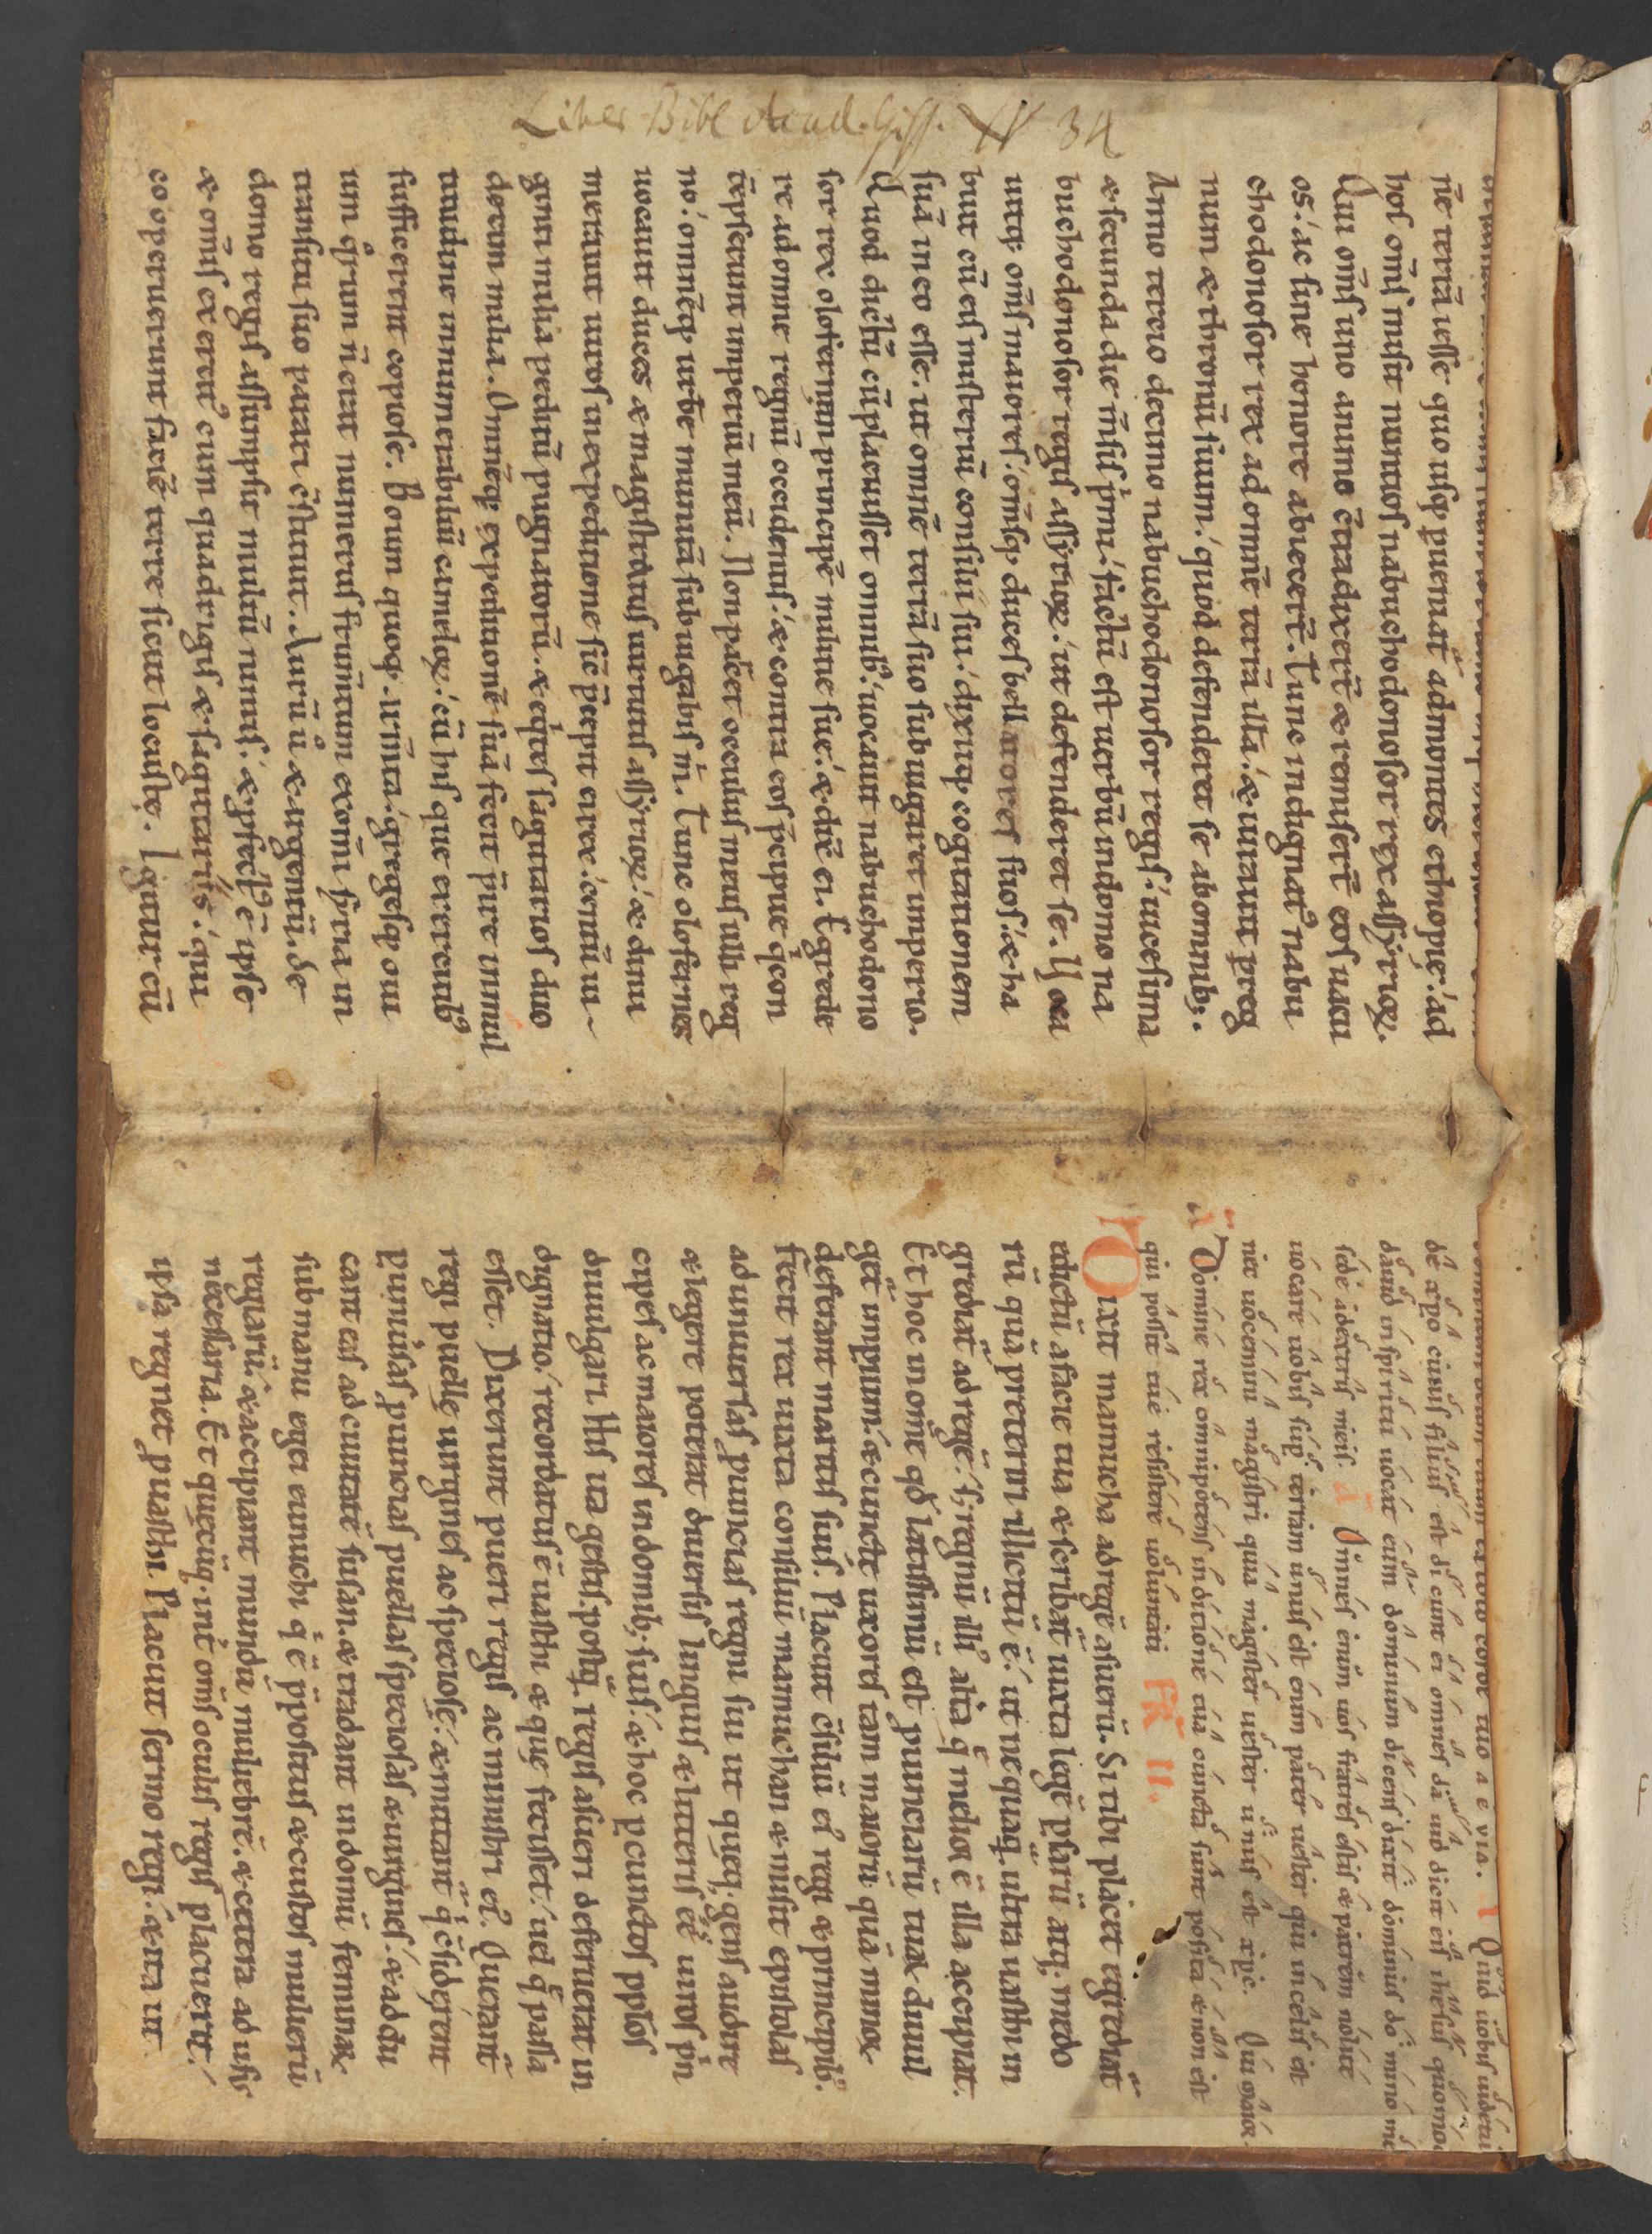 Liber Bibl Acad. Giss. XV 34
ne terrā iesse quo usq; pueniat᷑ ad montes ethiopię. ad
hos oms misit nuntios nabuchodonosor rex assyrioꝝ.
Qui oms uno animo c̄tradixert̄ & remisert̄ eos uacu
os. ac sine honore abiecert̄. Tunc indignat᷑ nabu
chodonosor rex ad omnē terrā illā. & iurauit p reg
num & thronū suum. quod defenderet se ab omnib;.
Anno tercio decimo nabuchodonosor regis. uicesima
& secunda die m̄sis primi. factū est uerbū in domo na
buchodonosor regis assyrioꝝ. ut defenderet se. Uoca
uitq; om̄s maiores. om̄sq; duces bellatores suos. & ha
buit cū eis misteriū consilii sui. dixitq; cogitationem
suā in eo esse. ut omnē terrā suo subiugaret imperio.
Quod dictū cū placuisset omnib;. uocauit nabuchodono
sor rex olofernem principē militie suę. & dix̄ ei. Egrede
re ad omne regnū occidentis. & contra eos p̄cipue q̇ con
tēpserunt imperiū meū. Non parcet oculus meus ulli reg
no. omnēq; urbē munitā subiugabis m̄. Tunc olofernes
uocauit duces & magistratus uirtutis assyrioꝝ. & dinu
merauit uiros in expeditionē sic̄ p̄cepit ei rex. centū ui-
ginti milia peditū pugnatorū. & eq̇tes sagittarios duo
decim milia. Omnēq; expeditionē suā fecit p̄ire in mul
titudine innumerabiliū cameloꝝ. cū his que exercitib;
sufficerent copiose. Boum quoq; armēta. gregesq; oui
um q̊rum n̄ erat numerus frumentum ex om̄i syria in
transitu suo parari c̄stituit. Aurū u̇ & argentū. de
domo regis assumpsit multū nimis. & pfect᷑ ē ipse
& om̄is exercit᷑ cum quadrigis & sagittariis. qui
cooperuerunt faciē terre sicut locustę. Igitur cū
Quid uobis uidetur
de xpo cuius filius est dicunt ei omnes dauid dicit eis ihesus quomodo
dauid in spiritu uocat eum dominum dicens dixit dominus domino meo
sede a dextris meis A Omnes enim uos fratres estis & patrem nolite
uocare uobis sup terram unus est enim pater uester qui in celis est
nec uocemini magistri quia magister uester unus est xpc.
Domine rex omnipotens in dicione tua cuncta sunt posita & non est
qui possit tue resistere uoluntati FR II.
Dixit mamucha ad regē asuerū. Si tibi placet egrediat᷑
edictū a facie tua & scribat᷑ iuxta legē psarū atq; medo
rū quā preteriri illicitū ē. ut nequaq; ultra uasthi in
grediat᷑ ad regē. s; regnū illi᷑ altera q̄ melior ē illa accipiat.
Et hoc in om̄e qd latissimū est puinciarū tuaꝝ diuul
get᷑ impium. & cuncte uxores tam maiorū quā minoꝝ
deferant maritis suis. Placuit c̄siliū ei᷑ regi & principib;.
fecit rex iuxta consiliū mamuchan & misit epistolas
ad uniuersas puincias regni sui ut quęq; gens audire
& legere poterat diuersis linguis & litteris eē uiros p̄n
cipes ac maiores in domib; suis. & hoc p cunctos pp̄los
diuulgari. His ita gestis. postq̄ regis asueri deferuerat in
dignatio. recordatus ē uasthi & quę fecisset. uel q̄ passa
esset. Dixerunt pueri regis ac ministri ei᷑. Querant᷑
regi puelle uirgines ac speciose. & mittant᷑ q̇ c̄siderent
p uniuersas puincias puellas speciosas & uirgines. & addu
cant eas ad ciuitatē susan. & tradant in domū feminaꝝ
sub manu egei eunuchi q̇ ē p̄positus & custos mulierū
regiarū. & accipiant mundū muliebrē. & cetera ad usus
necessaria. Et quęcūq; int̄ om̄s oculis regis placuerit.
ipsa regnet p uasthi. Placuit sermo regi. & ita ut